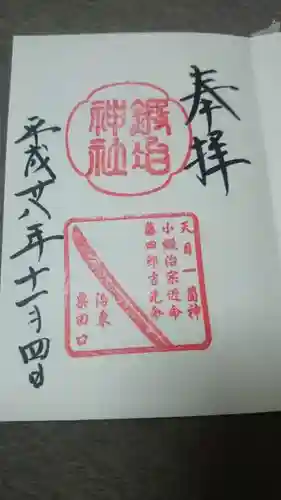 奉拝
鍛冶
神社
天目一箇神
小鍛治宗近命
藤四郎吉光命
洛東
粟田口
平成廿八年十一月四日